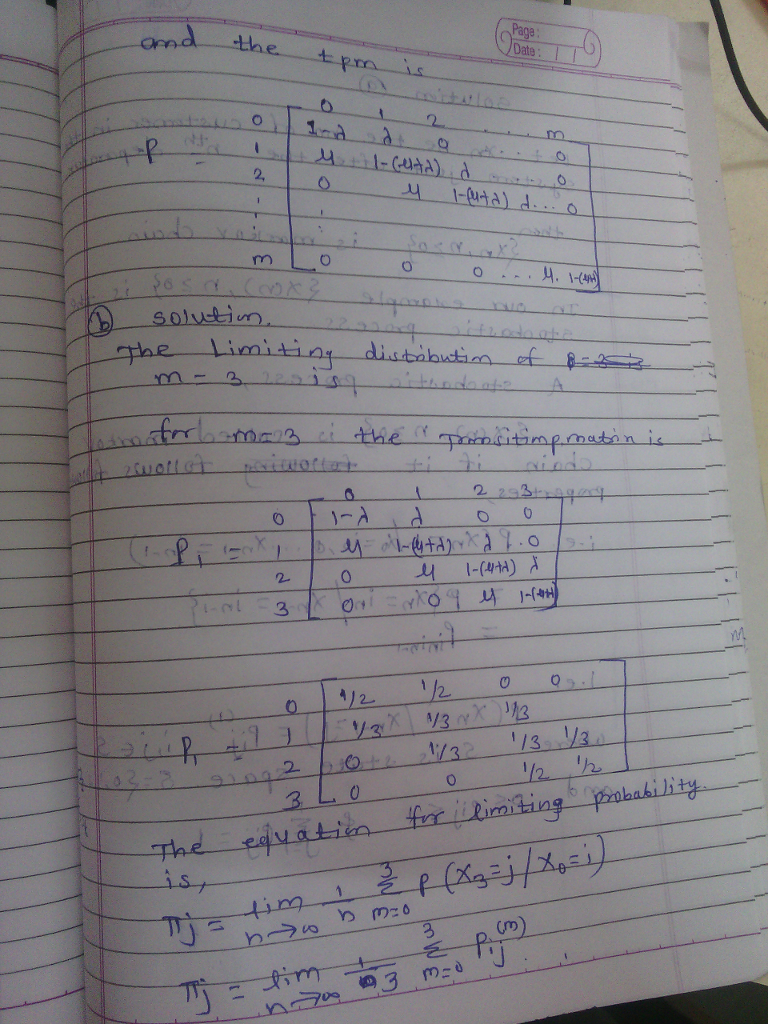 Page:
Date: / /
and the tpm is
0 1 2 ... m
0 1-λ λ 0 ... 0
P = 1 μ 1-(μ+λ) λ 0
2 0 μ 1-(μ+λ) λ... 0
m 0 0 0 ... μ 1-(μ+λ)
(b) solution.
The Limiting distribution of
m = 3 is
for m=3 the matrix is
0 1 2 3
0 1-λ λ 0 0
P1 = 1 μ 1-(μ+λ) λ 0
2 0 μ 1-(μ+λ) λ
3 0 0 μ 1-(μ+λ)
0 1/2 1/2 0 0
P1 = 1 1/3 1/3 1/3
2 0 1/3 1/3 1/3
3 0 0 1/2 1/2
The equation for limiting probability.
is,
πj = lim n→∞ 1/n Σ m=0 3 P(X3=j/X0=i)
πj = lim n→∞ 1/3 Σ m=0 3 Pij(m).